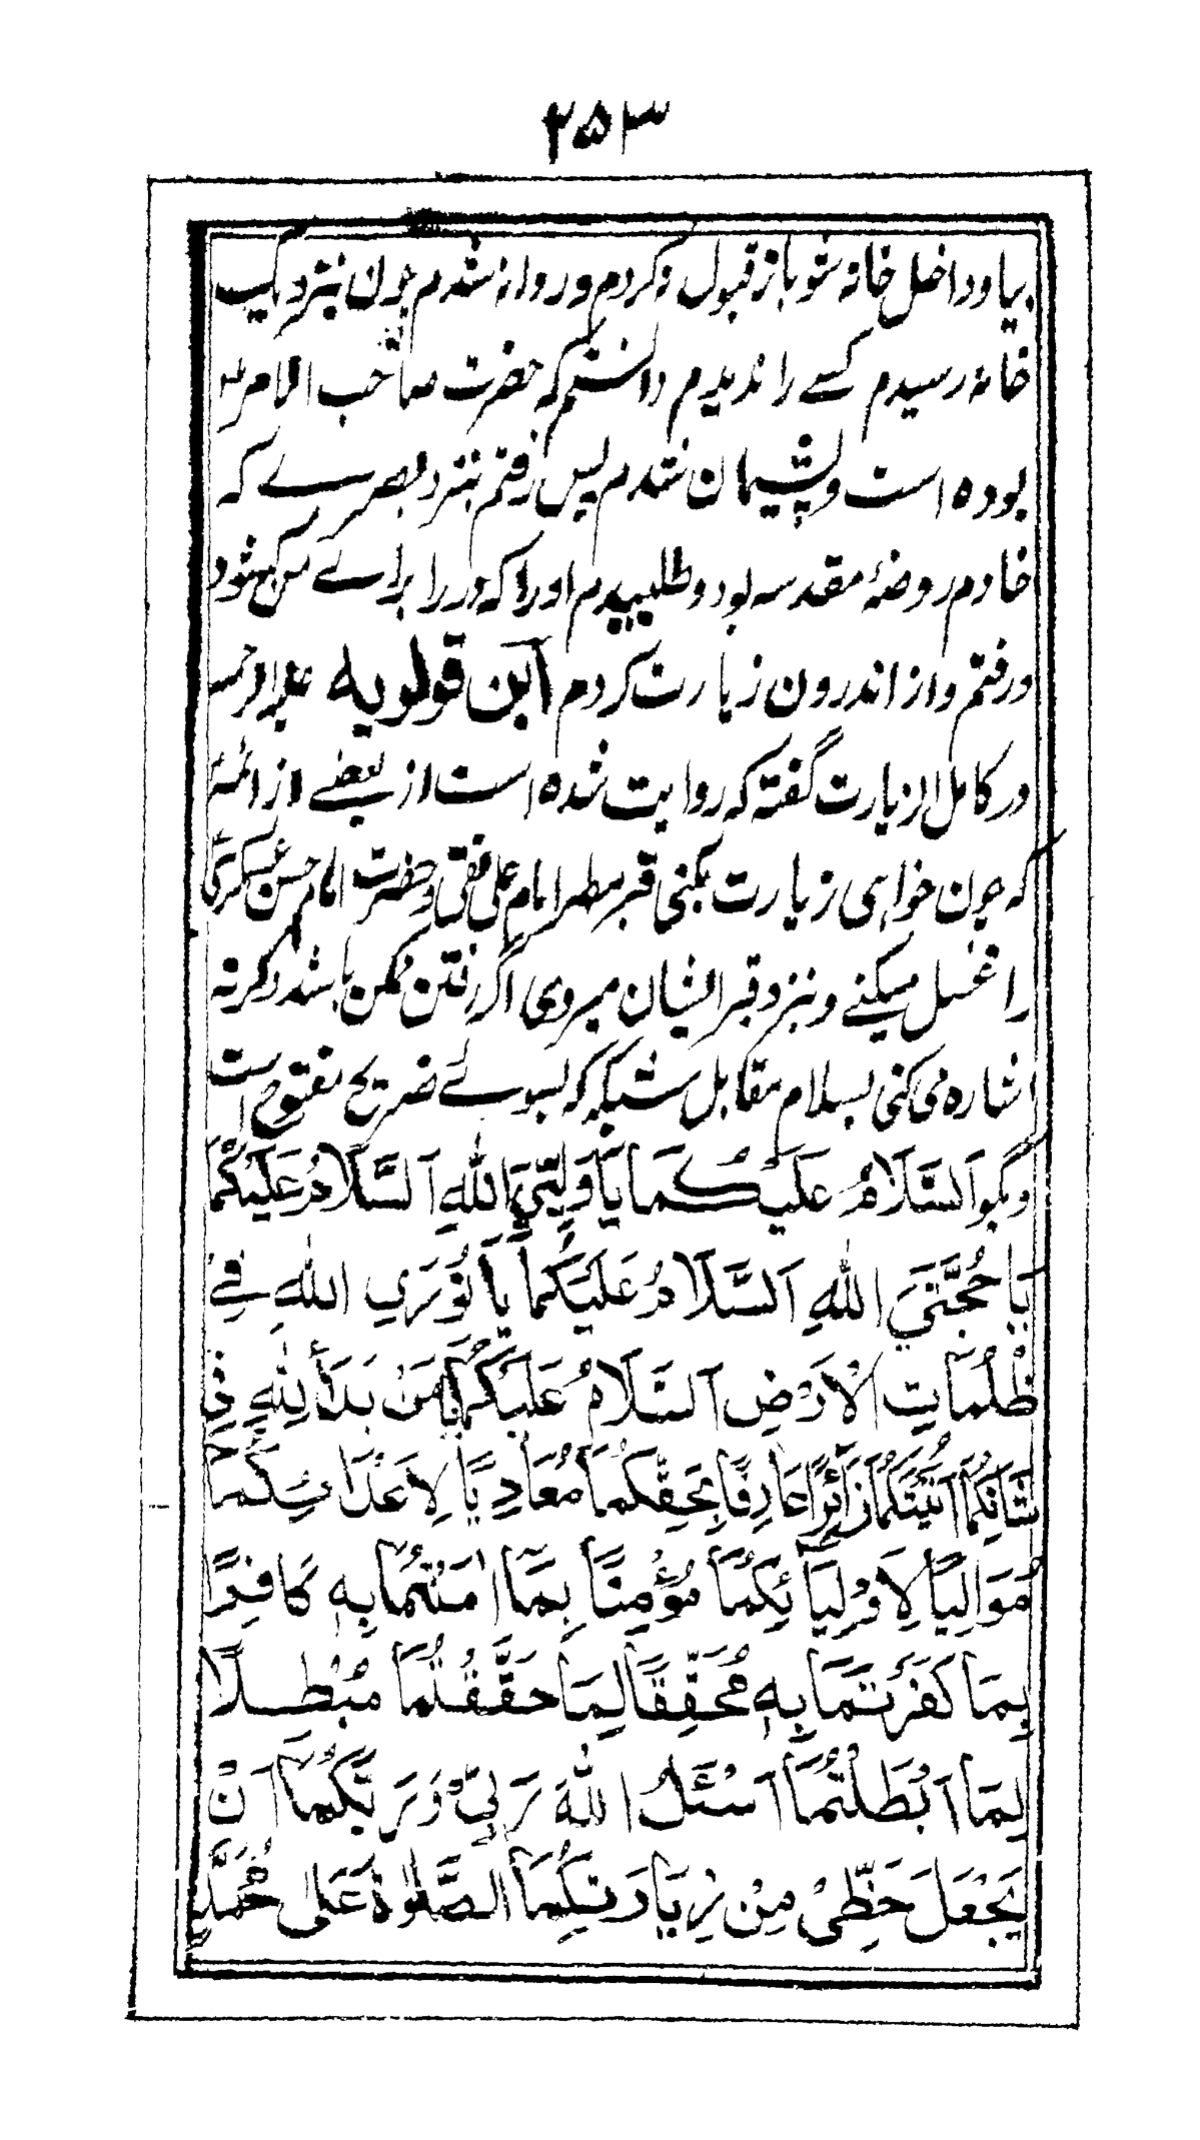 ۲۵۳
بیا و داخل خانه شو باز قبول نکردم و روانه شدم چون بنزدیک
خانه رسیدم کسے را ندیدم دانستم که حضرت صاحب الامر
بوده است و پشیمان شدم پس رفتم بنزد بصرے که
خادم روضهٔ مقدسه بود و طلبیدم او را که در را براے من بگشود
و رفتم و از اندرون زیارت کردم ابن قولویه علیه الرحمه
در کامل الزیارت گفته که روایت شده است از بعضے از ائمهٔ
که چون خواهی زیارت بکنی قبر مطهر امام علی نقی و حضرت امام حسن عسکری
را غسل میکنے و نزد قبر ایشان میروی اگر رفتن ممکن باشد وگرنه
اشاره می کنی بسلام مقابل شبکه که بسوے ضریح مفتوح است
و بگو اَلسَّلَامُ عَلَيْكُمَا يَا وَلِيَّيِ اللّٰهِ اَلسَّلَامُ عَلَيْكُمَا
يَا حُجَّتَيِ اللّٰهِ اَلسَّلَامُ عَلَيْكُمَا يَا نُوْرَيِ اللّٰهِ فِي
ظُلُمَاتِ الْاَرْضِ اَلسَّلَامُ عَلَيْكُمَا يَا مَنْ بَدَأَ لِلّٰهِ فِي
شَأْنِكُمَا اَتَيْتُكُمَا زَائِرًا عَارِفًا بِحَقِّكُمَا مُعَادِيًا لِاَعْدَائِكُمَا
مُوَالِيًا لِاَوْلِيَائِكُمَا مُؤْمِنًا بِمَا اٰمَنْتُمَا بِهٖ كَافِرًا
بِمَا كَفَرْتُمَا بِهٖ مُحَقِّقًا لِمَا حَقَّقْتُمَا مُبْطِلًا
لِمَا اَبْطَلْتُمَا اَسْئَلُ اللّٰهَ رَبِّيْ وَرَبَّكُمَا اَنْ
يَجْعَلَ حَظِّيْ مِنْ زِيَارَتِكُمَا الصَّلٰوةَ عَلٰى مُحَمَّدٍ